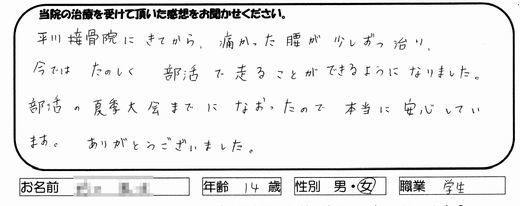 当院の治療を受けて頂いた感想をお聞かせください。
平川接骨院にきてから、痛かった腰が少しずつ治り、
今では たのしく 部活で走ることができるようになりました。
部活の夏季大会までになおったので 本当に安心してい
ます。 ありがとうございました。
お名前 年齢 14 歳 性別 男・女 職業 学生